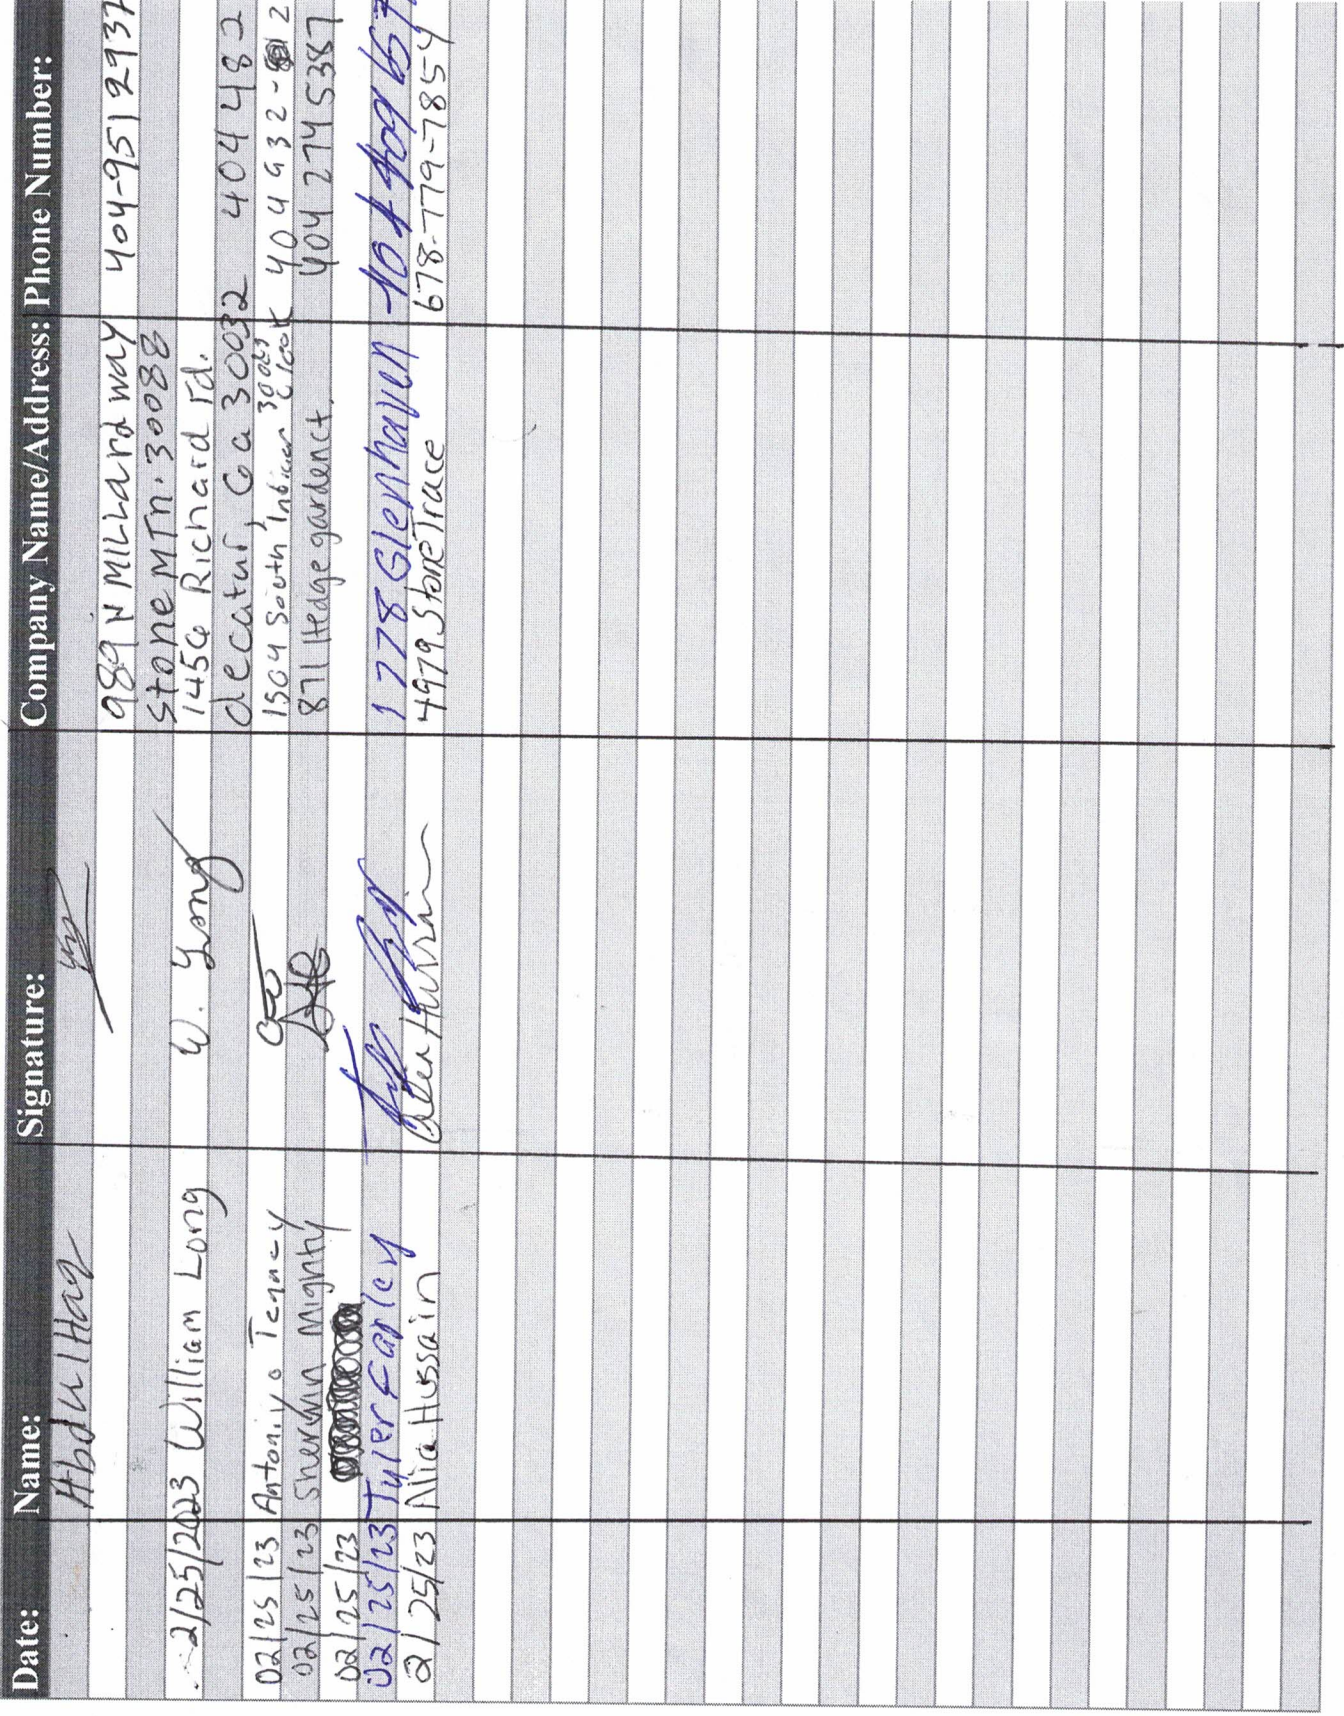 Date: Name: Signature: Company Name/Address: Phone Number:
Abdul Haq
989 N MILLard way 404-951 2937
stone MTn. 30088
2/25/2023 William Long W. Long 1456 Richard rd.
decatur, Ga 30032 404 482
02/25/23 Antoniyo Tenney 1504 South Indian Creek 404 932- 2
02/25/23 Sherwin Mighty 871 Hedge garden ct. 404 274 5387
02/25/23
02/25/23 Tyler Farley 1778 Glenhaven 404 409 657
2/25/23 Alia Hussain 4979 Stone Trace 678-779-7854